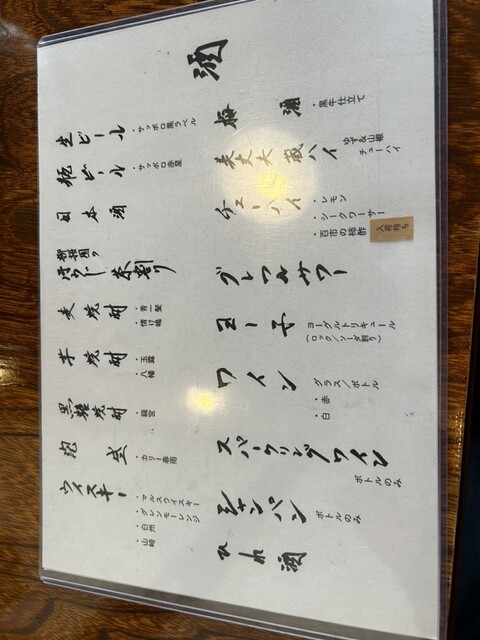 酒
生ビール
・サッポロ黒ラベル
瓶ビール
・サッポロ赤星
日本酒
柳桜園の
ほうじ茶割り
麦焼酎
・青一髪
・情け嶋
芋焼酎
・玉露
・八幡
黒糖焼酎
・龍宮
泡盛
・カリー春雨
ウイスキー
・マルスウイスキー
・グレンモーレンジ
・白州
・山崎
梅酒
・黒牛仕立て
美丈夫蔵ハイ
ゆず&山椒
チューハイ
チューハイ
・レモン
・シークワーサー
・百市の柿酢
入荷待ち
グレフルサワー
ヨー子
ヨーグルトリキュール
(ロック/ソーダ割り)
ワイン
グラス/ボトル
・赤
・白
スパークリングワイン
ボトルのみ
シャンパン
ボトルのみ
ひれ酒